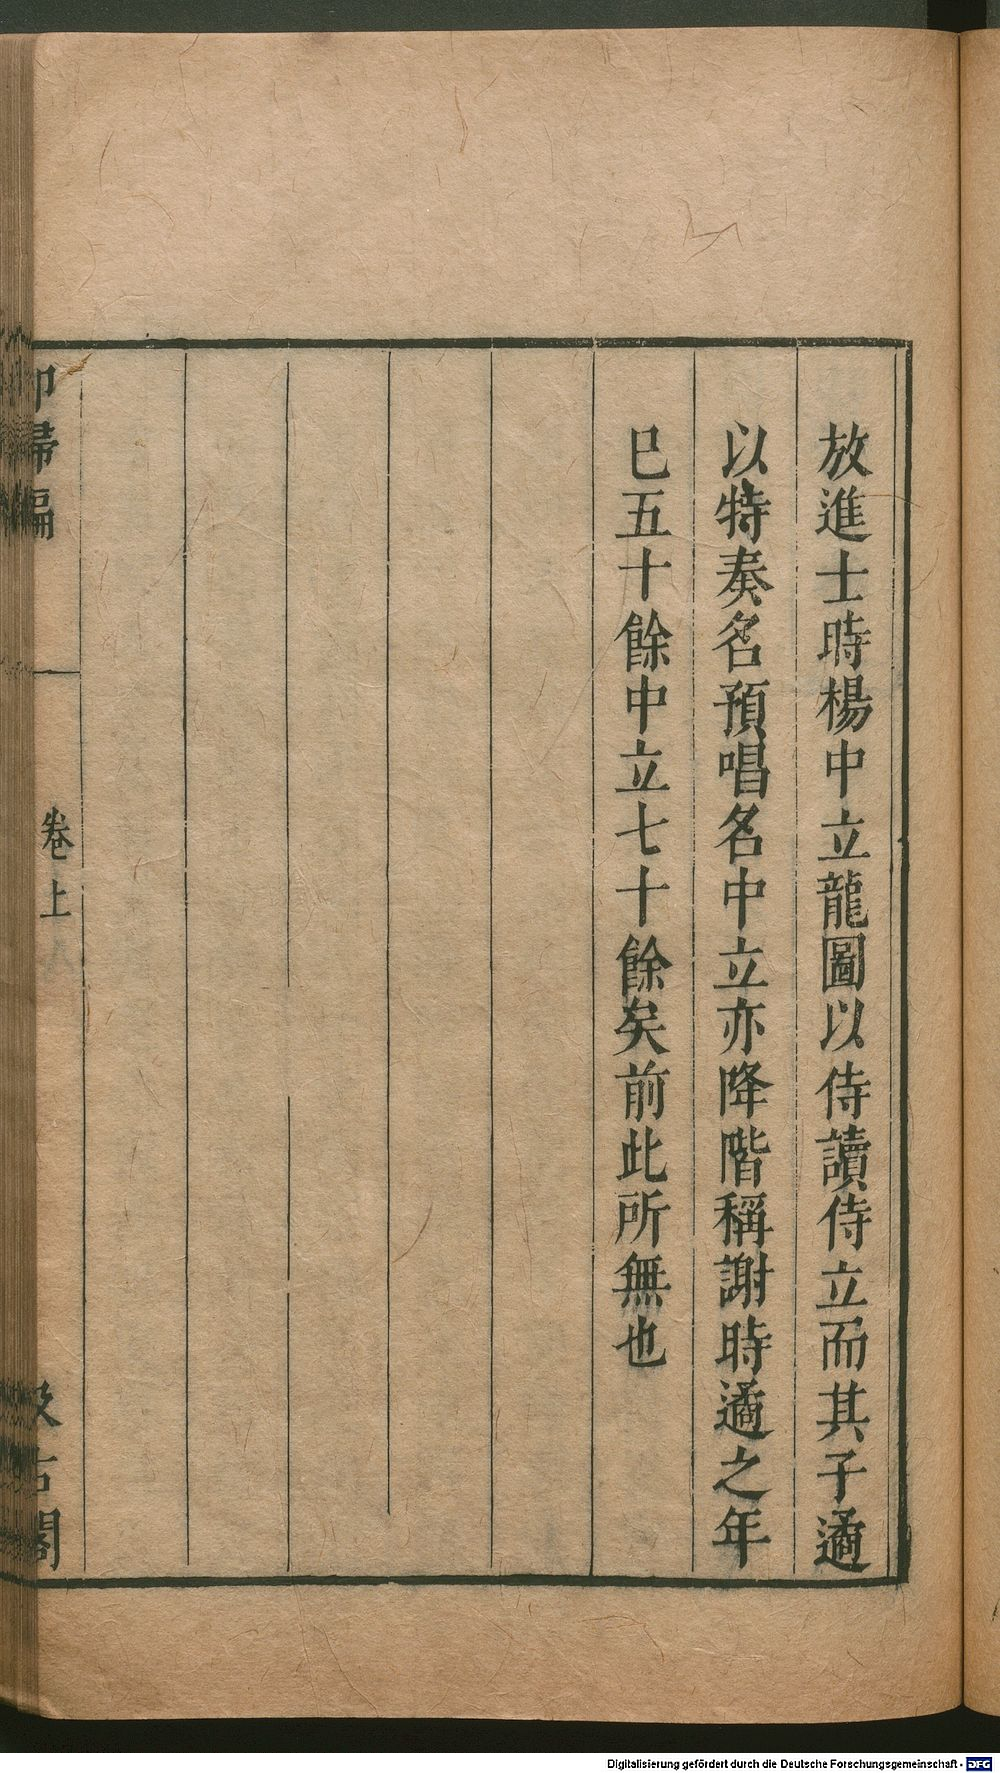 放進士時楊中立龍圖以侍讀侍立而其子遹
以特奏名預唱名中立亦降階稱謝時遹之年
巳五十餘中立七十餘矣前此所無也
卻掃編
卷上
汲古閣
Digitalisierung gefördert durch die Deutsche Forschungsgemeinschaft - DFG